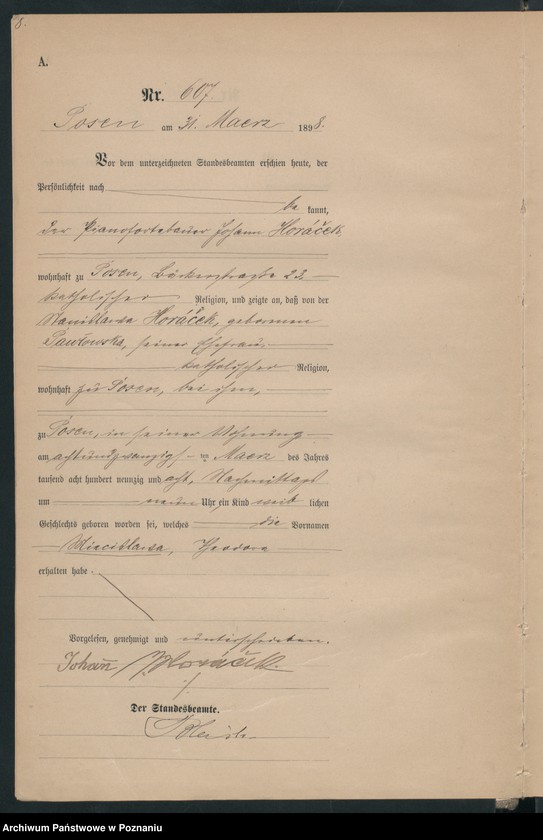 8.
A.
Nr. 607.
Posen am 31. Maerz 1898.
Vor dem unterzeichneten Standesbeamten erschien heute, der
Persönlichkeit nach
be kannt,
Der Pianofortebauer Johann Horáček,
wohnhaft zu Posen, Bäckerstraße 23,
katholischer Religion, und zeigte an, daß von der
Stanislawa Horáček, geborenen
Pawłowska, seiner Ehefrau,
katholischer Religion,
wohnhaft zu Posen, bei ihm,
zu Posen, in seiner Wohnung
am achtundzwanzigsten Maerz des Jahres
tausend acht hundert neunzig und acht, Nachmittags
um neun Uhr ein Kind weib lichen
Geschlechts geboren worden sei, welches die Vornamen
Miecislawa, Theodora
erhalten habe.
Vorgelesen, genehmigt und unterschrieben.
Johann Horáček
Der Standesbeamte.
Archiwum Państwowe w Poznaniu